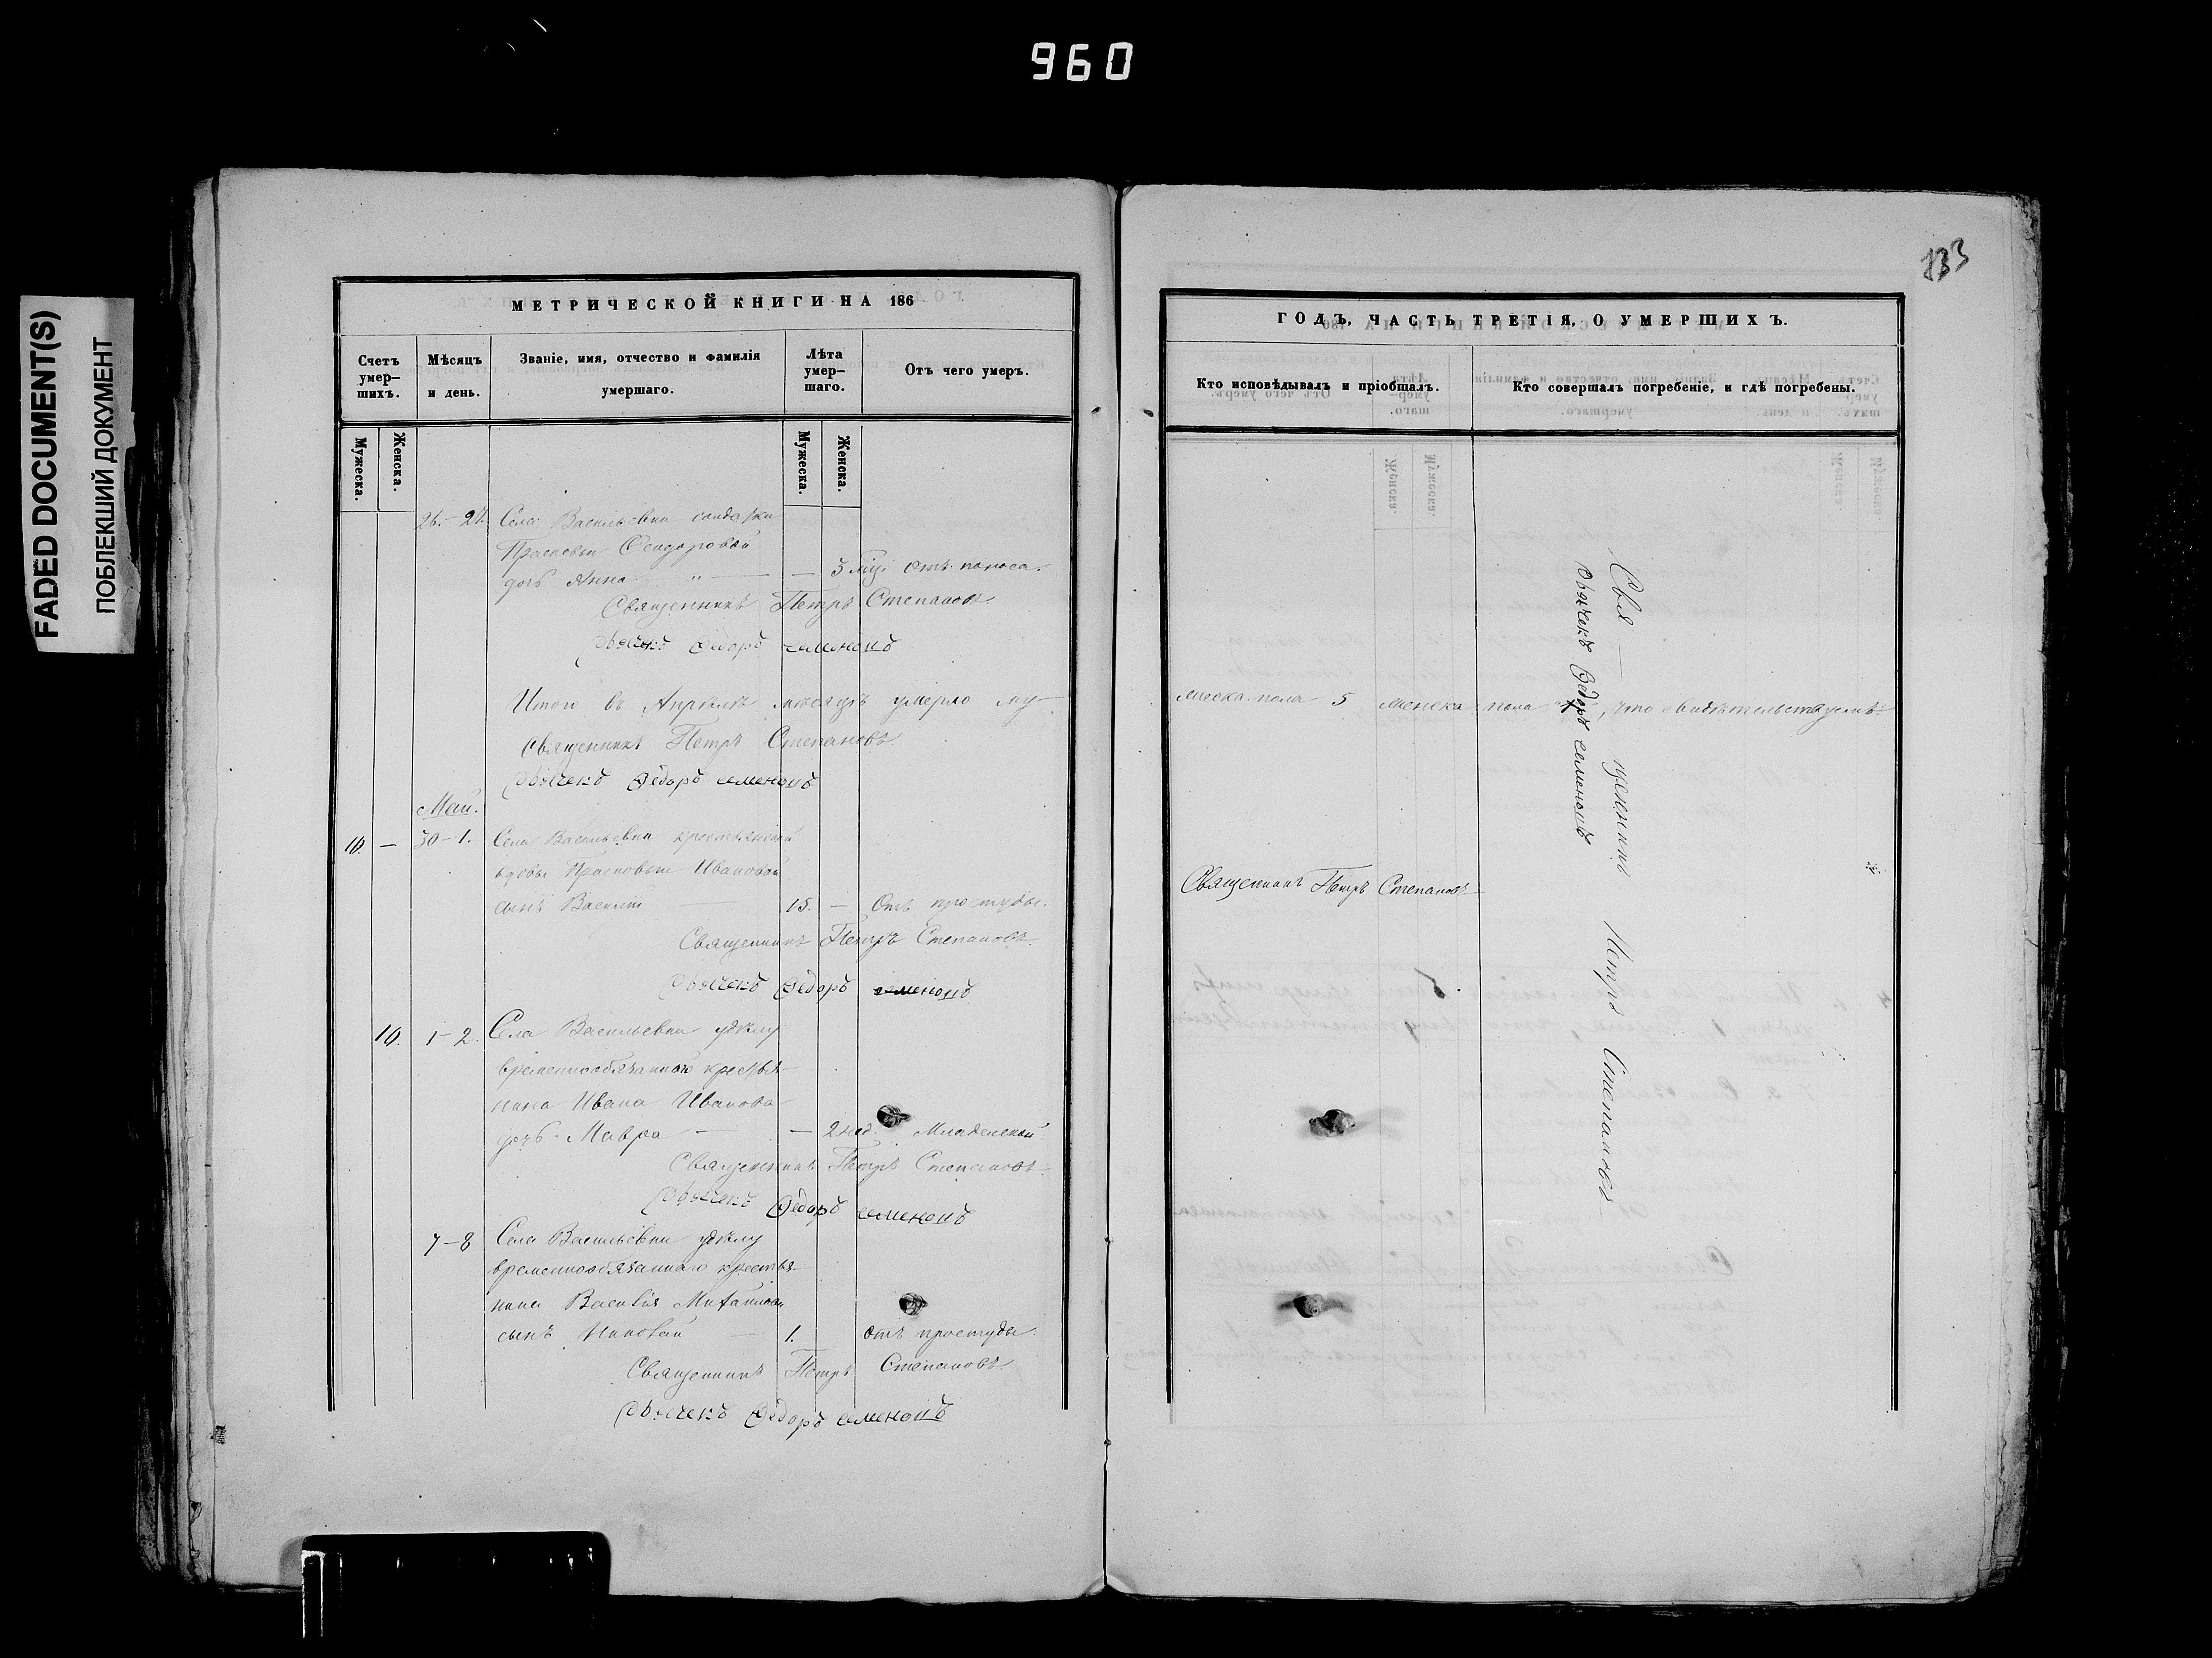 960
FADED DOCUMENT(S)
ПОБЛЕКШИЙ ДОКУМЕНТ
МЕТРИЧЕСКОЙ КНИГИ НА 186
Счетъ умер-шихъ.
Мѣсяцъ и день.
Званіе, имя, отчество и фамилія умершаго.
Лѣта умер-шаго.
Отъ чего умеръ.
Мужеска.
Женска.
Мужеска.
Женска.
26.-27. Села Васильевки солдатки
Прасковьи Ѳеодоровой
дочь Анна — 3 мѣс. Отъ поноса.
Священникъ Петръ Степановъ.
Дьячекъ Ѳедоръ Семеновъ
Итого въ Апрѣлѣ мѣсяцѣ умерло му-
Священникъ Петръ Степановъ
Дьячекъ Ѳедоръ Семеновъ
Май.
10. — 30-1. Села Васильевки крестьянской
вдовы Прасковьи Ивановой
сынъ Василій — 15. — Отъ простуды.
Священникъ Петръ Степановъ.
Дьячекъ Ѳедоръ Семеновъ
10. 1-2. Села Васильевки
временнообязаннаго крестья-
нина Ивана Иванова
дочь Мавра — — 2 нед. Младенской
Священникъ Петръ Степановъ.
Дьячекъ Ѳедоръ Семеновъ
7-8 Села Васильевки
временнообязаннаго крестья-
нина Василія Михайлова
сынъ — 1. отъ простуды.
Священникъ Петръ Степановъ.
Дьячекъ Ѳедоръ Семеновъ
133
ГОДЪ, ЧАСТЬ ТРЕТІЯ, О УМЕРШИХЪ.
Кто исповѣдывалъ и пріобщалъ.
Кто совершалъ погребеніе, и гдѣ погребены.
жеска пола 5 женска пола, что свидѣтельствуемъ.
Священникъ Петръ Степановъ
Свя— щенникъ Петръ Степановъ
Дьячекъ Ѳедоръ Семеновъ